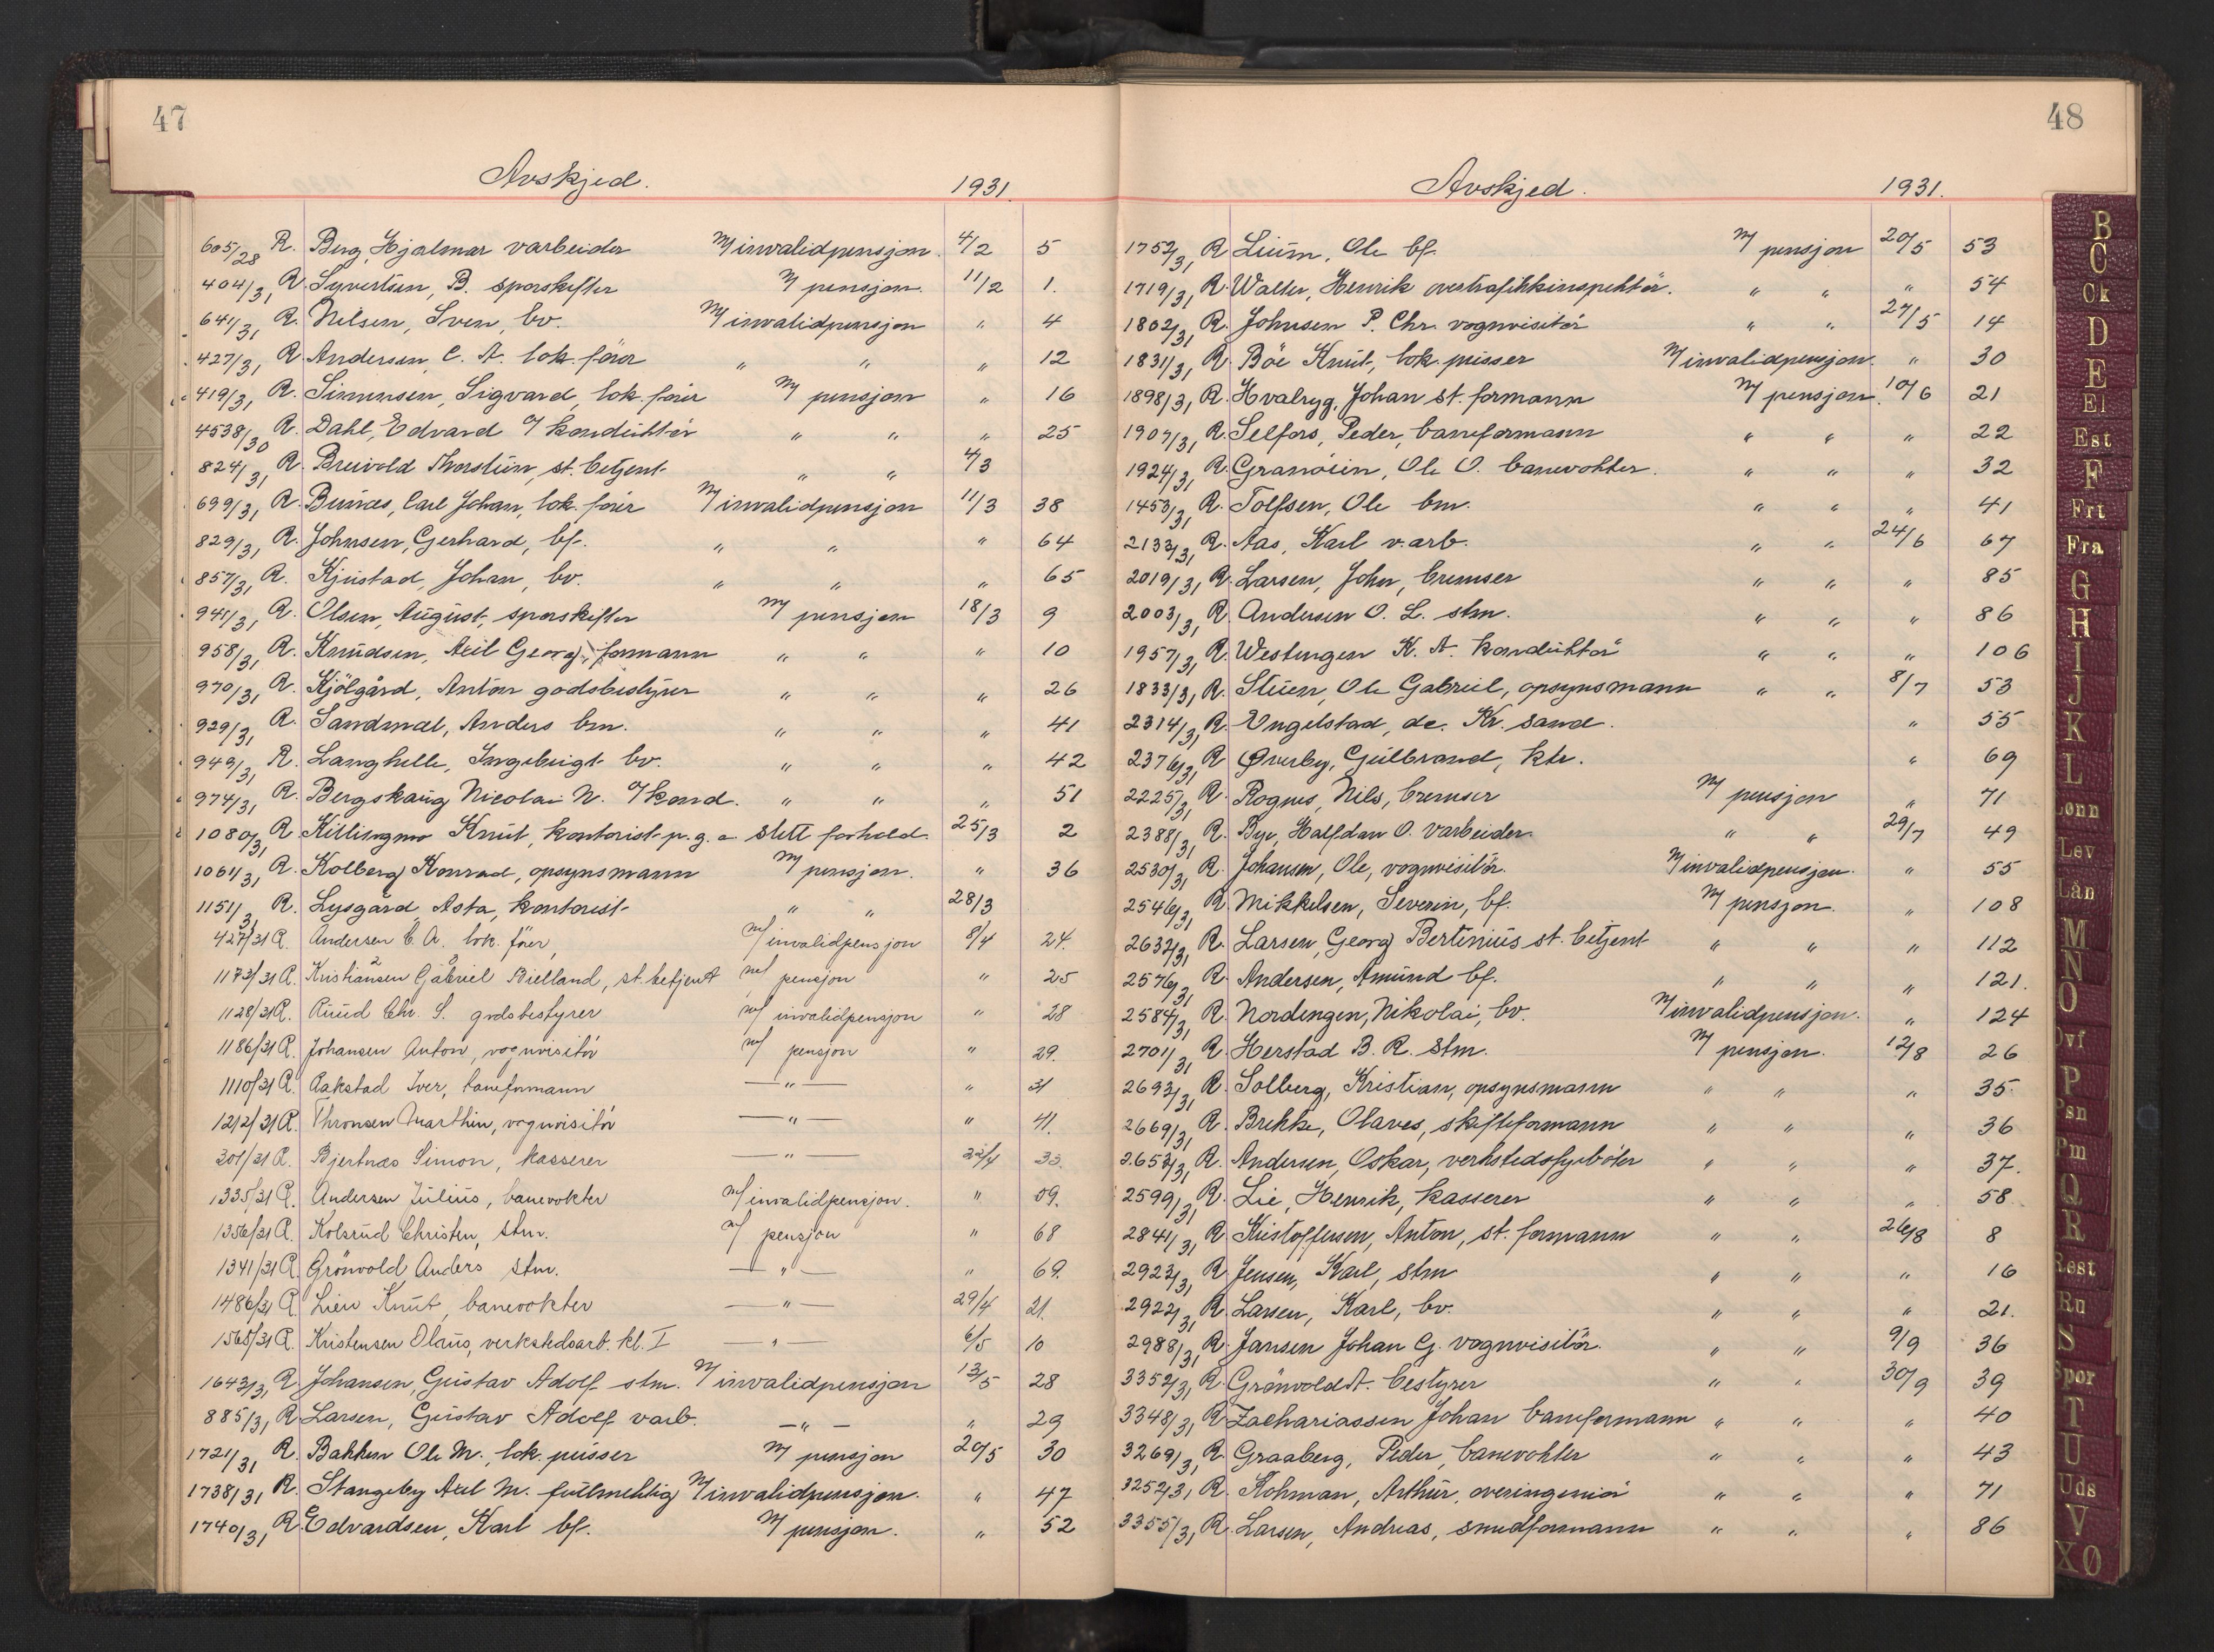 47
Avskjed. 1931.
605/28 R. Berg, Hjalmar varbeider m/ invalidpensjon. 4/2 5
404/31 R. Syvertsen, B. sporskifter m/ pensjon. 11/2 1.
641/31 R. Nilsen, Sven, bv. m/ invalidpensjon " 4
427/31 R. Andersen, C. A. lok. förer " " " 12
419/31 R. Simonsen, Sigvard, lok. förer m/ pensjon " 16
4538/30 R. Dahl, Edvard o/ konduktör " " " 25
824/31 R. Breivold Thorstein, st. betjent " " 4/3
699/31 R. Bunæs, Carl Johan, lok. förer m/ invalidpensjon 11/3 38
829/31 R. Johnsen, Gerhard, bf. " " " 64
857/31 R. Kjustad, Johan, bv. " " " 65
941/31 R. Olsen, August, sporskifter m/ pensjon 18/3 9
958/31 R. Knudsen, Axil Georg, formann " " " 10
970/31 R. Kjölgård, Anton godsbestyrer " " " 26
929/31 R. Sandmæl, Anders bm. " " " 41
949/31 R. Langhelle, Ingebrigt bv. " " " 42
974/31 R. Bergskaug Nicolai N. o/ kond. " " " 51
1080/31 R. Killingmo Knut, kontorist p. g. a slett forhold. 25/3 2
1064/31 R. Kolberg Konrad, opsynsmann m/ pensjon. " 36
1151/31 R. Lysgård Asta, kontorist " " 28/3
427/31 R. Andersen C. A. lok. förer, m/ invalidpensjon 8/4 24.
1173/31 R. Kristiansen Gabriel Bielland, st. betjent m/ pensjon " 25
1128/31 R. Ruud Chr. S. godsbestyrer m/ invalidpensjon " 28
1186/31 R. Johansen Anton, vognvisitör m/ pensjon " 29.
1110/31 R. Aakstad Iver, baneformann — " — " 31
1212/31 R. Thronsen Marthin, vognvisitör — " — " 41.
301/31 R. Bjertnæs Simon, kasserer — " — 22/4 33.
1335/31 R. Andersen Julius, banevokter m/ invalidpensjon. " 59.
1356/31 R. Kolsrud Christen, stm. m/ pensjon " 68
1341/31 R. Grönvold Anders stm. — " — " 69.
1486/31 R. Lien Knut, banevokter — " — 29/4 21.
1565/31 R. Kristensen Olaus, verkstedsarb. kl. I — " — 6/5 10
1643/31 R. Johansen, Gustav Adolf stm. m/ invalidpensjon 13/5 28
885/31 R. Larsen, Gustav Adolf varb. — " — " 29
1721/31 R. Bakken Ole M., lok. pusser m/ pensjon 20/5 30
1738/31 R. Stangeby Axel M. fullmektig m/ invalidpensjon. " 47
1740/31 R. Edvardsen, Karl bf. m/ pensjon. " 52
48
Avskjed. 1931.
1752/31 R. Lium, Ole bf. m/ pensjon 20/5 53
1719/31 R. Walter, Henrik overtrafikkinspektör. " " " 54
1802/31 R. Johnsen P. Chr. vognvisitör " " 27/5 14
1831/31 R. Böe Knut, lok. pusser m/ invalidpensjon. " 30
1898/31 R. Hvalryg, Johan st. formann m/ pensjon. 10/6 21
1907/31 R. Selfors, Peder, baneformann " " " 22
1924/31 R. Granöien, Ole O. banevokter. " " " 32
1453/31 R. Tolfsen, Ole bm. " " " 41
2133/31 R. Aas, Karl v.arb. " " 24/6 67
2019/31 R. Larsen, John, bremser " " " 85
2003/31 R. Andersen O. L. stm. " " " 86
1957/31 R. Westengen K. A. konduktör " " " 106
1833/31 R. Stuen, Ole Gabriel, opsynsmann " " 8/7 53
2314/31 R. Engelstad, dc. Kr. sand. " 55
2376/31 R. Øverby, Gulbrand, ktr. " 69
2225/31 R. Rognes, Nils, bremser m/ pensjon " 71
2388/31 R. Bye, Halfdan O. varbeider. " " 29/7 49
2530/31 R. Johansen, Ole, vognvisitör. m/ invalidpensjon. " 55
2546/31 R. Mikkelsen, Severin, bf. m/ pensjon. " 108
2632/31 R. Larsen, Georg Bertinius st. betjent " " " 112
2576/31 R. Andersen, Amund bf. " " " 121.
2584/31 R. Nordengen, Nikolai, bv. m/ invalidpensjon. " 124
2701/31 R. Herstad B. R. stm. m/ pensjon. 12/8 26
2693/31 R. Solberg, Kristian, opsynsmann " " " 35.
2669/31 R. Brekke, Olaves, skifteformann " " " 36
2652/31 R. Andersen, Oskar, verkstedsfyrböter " " " 37.
2599/31 R. Lie, Henrik, kasserer " " " 58.
2841/31 R. Kristoffersen, Anton, st. formann " " 26/8 8
2923/31 R. Jensen, Karl, stm " " " 16
2922/31 R. Larsen, Karl, bv. " " " 21.
2988/31 R. Jansen Johan G. vognvisitör. " " 9/9 36
3352/31 R. Grönvold A. bestyrer " " 30/9 39
3348/31 R. Zachariassen Johan baneformann " " " 40
3269/31 R. Graaberg, Peder, banevokter " " " 43
3252/31 R. Kohman, Arthur, overingeniör " " " 71
3355/31 R. Larsen, Andreas, smedformann " " " 86
B
C
Ck
D
E
El
Est
F
Frt
Fra
G
H
I
J
K
L
Lønn
Lev
Lån
M
N
O
Ovf
P
Psn
Pm
Q
R
Rest
Ru
S
Spor
T
U
Uds
V
XØ